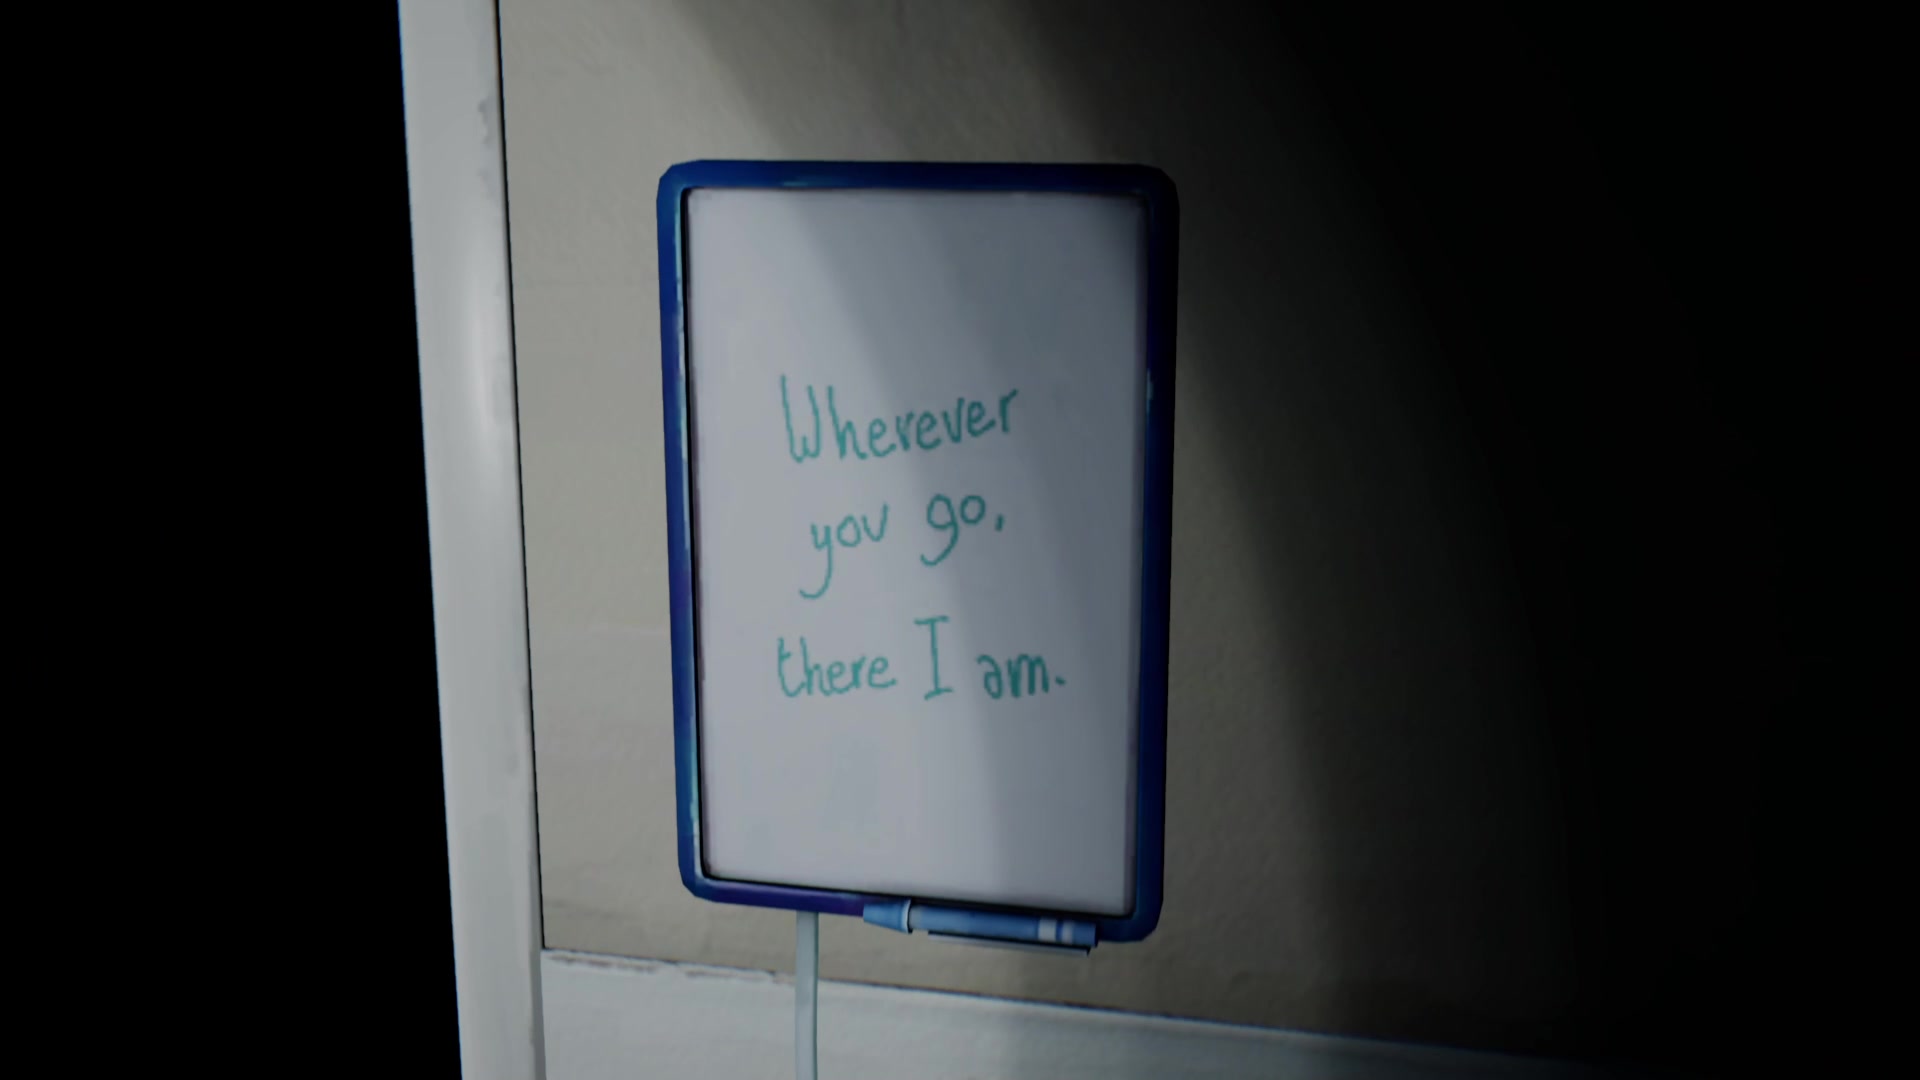 Wherever
you go,
there I am.